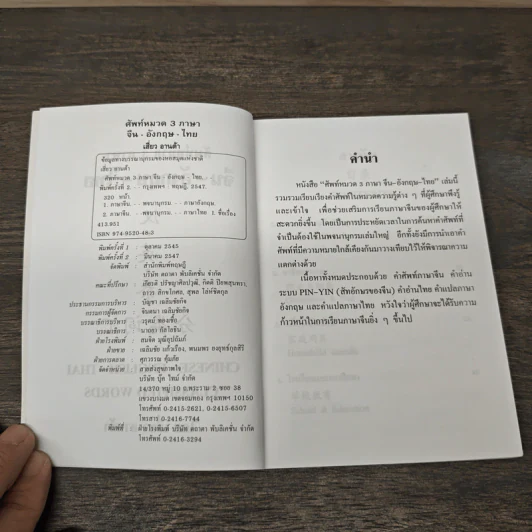 ศัพท์หมวด 3 ภาษา
จีน - อังกฤษ - ไทย
เสี่ยว อานต้า
ข้อมูลทางบรรณานุกรมของหอสมุดแห่งชาติ
เสี่ยว อานต้า
ศัพท์หมวด 3 ภาษา จีน - อังกฤษ - ไทย.
พิมพ์ครั้งที่ 2. กรุงเทพฯ : ทฤษฎี, 2547.
320 หน้า
1. ภาษาจีน--พจนานุกรม--ภาษาอังกฤษ.
2. ภาษาจีน--พจนานุกรม--ภาษาไทย I. ชื่อเรื่อง
413.951
ISBN 974-9520-48-3
พิมพ์ครั้งที่ 1 : ตุลาคม 2545
พิมพ์ครั้งที่ 2 : มีนาคม 2547
จัดพิมพ์ : สำนักพิมพ์ทฤษฎี
บริษัท ดถาตา พับลิเคชั่น จำกัด
คณะที่ปรึกษา :
ประธานกรรมการบริหาร : บัญชา เฉลิมชัยกิจ
กรรมการผู้จัดการ : จินตนา เฉลิมชัยกิจ
บรรณาธิการบริหาร :
บรรณาธิการ :
ฝ่ายโรงพิมพ์ :
ฝ่ายขาย :
ฝ่ายตลาด : คุ้มภัย
จัดจำหน่าย : สายส่งสุขภาพใจ
บริษัท บุ๊ค ไทม์ จำกัด
14/370 หมู่ 10 ถ.พระราม 2 ซอย 38
แขวงบางมด เขตจอมทอง กรุงเทพฯ 10150
โทรศัพท์ 0-2415-2621, 0-2415-6507
โทรสาร 0-2416-7744
พิมพ์ที่ : ฝ่ายโรงพิมพ์ บริษัท ดถาตา พับลิเคชั่น จำกัด
โทรศัพท์ 0-2416-3294
คำนำ
หนังสือ “ศัพท์หมวด 3 ภาษา จีน-อังกฤษ-ไทย” เล่มนี้
รวมรวมเรียบเรียงคำศัพท์ในหมวดความรู้ต่าง ๆ ที่ผู้ศึกษาพึงรู้
และเข้าใจ เพื่อช่วยเสริมการเรียนภาษาจีนของผู้ศึกษาให้
สะดวกยิ่งขึ้น โดยเป็นการประหยัดเวลาในการค้นหาคำศัพท์ที่
จำเป็นต้องใช้ในพจนานุกรมเล่มใหญ่ อีกทั้งยังมีการนำเอาคำ
ศัพท์ที่มีความหมายใกล้เคียงกันมาวางเทียบไว้ให้พิจารณาความ
แตกต่างด้วย
เนื้อหาทั้งหมดประกอบด้วย คำศัพท์ภาษาจีน คำอ่าน
ระบบ PIN-YIN (สัทอักษรของจีน) คำอ่านไทย คำแปลภาษา
อังกฤษ และคำแปลภาษาไทย หวังใจว่าผู้ศึกษาจะได้รับความ
ก้าวหน้าในการเรียนภาษาจีนยิ่ง ๆ ขึ้นไป